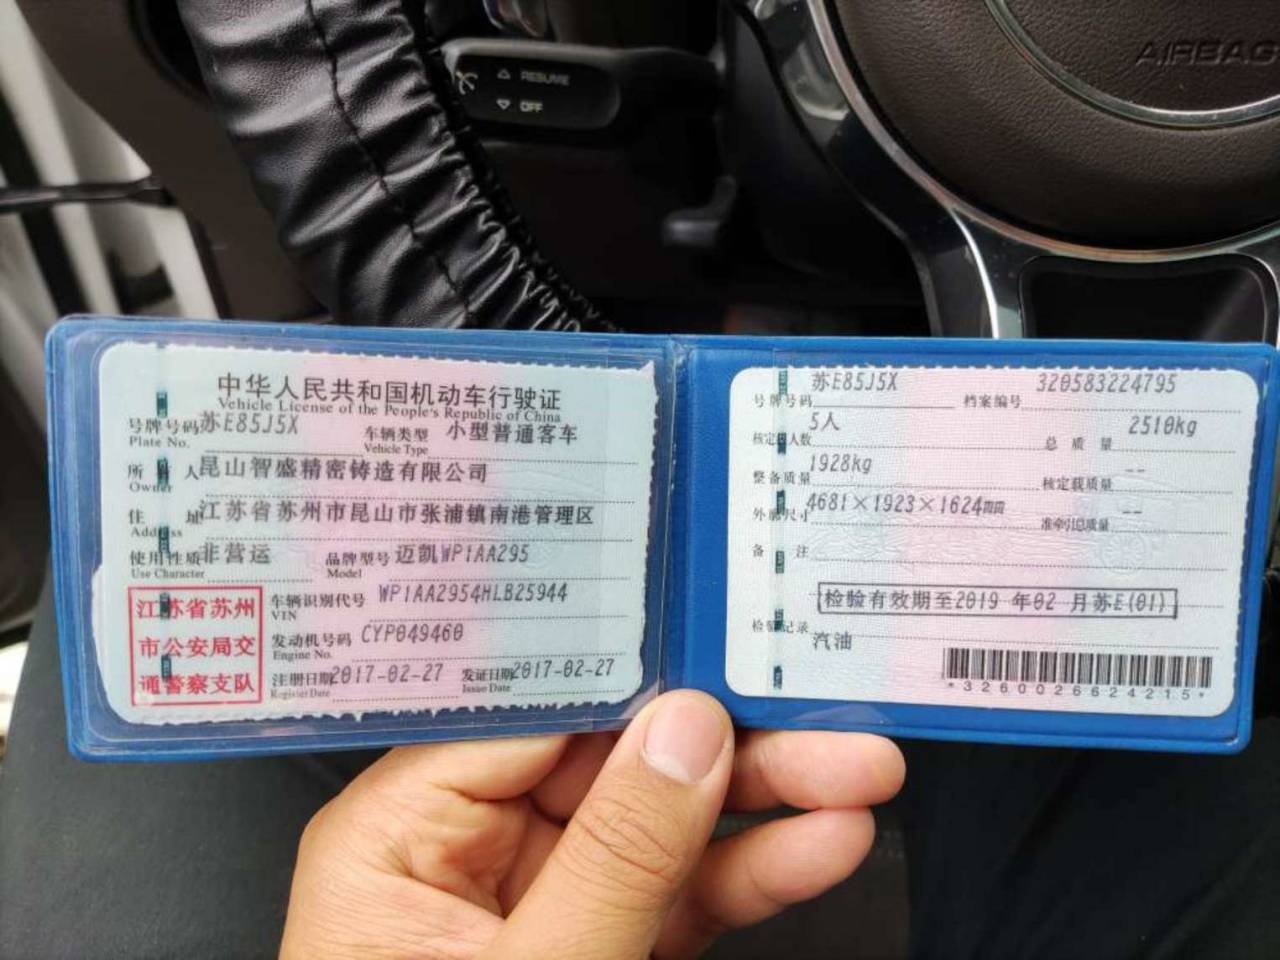 RESUME
OFF
AIRBAG
中华人民共和国机动车行驶证
Vehicle License of the People's Republic of China
号牌号码 苏E85J5X 车辆类型 小型普通客车
Plate No. Vehicle Type
所有人 昆山智盛精密铸造有限公司
Owner
住址 江苏省苏州市昆山市张浦镇南港管理区
Address
使用性质 非营运 品牌型号 迈凯WP1AA295
Use Character Model
江苏省苏州
市公安局交
通警察支队
车辆识别代号 WP1AA2954HLB25944
VIN
发动机号码 CYP049460
Engine No.
注册日期 2017-02-27 发证日期 2017-02-27
Register Date Issue Date
号牌号码 苏E85J5X 档案编号 320583224795
核定人数 5人 总质量 2510kg
整备质量 1928kg 核定载质量 --
外廓尺寸 4681×1923×1624mm 准牵引总质量 --
备注
检验有效期至2019 年02 月苏E(01)
检验记录
汽油
*3260026624215*